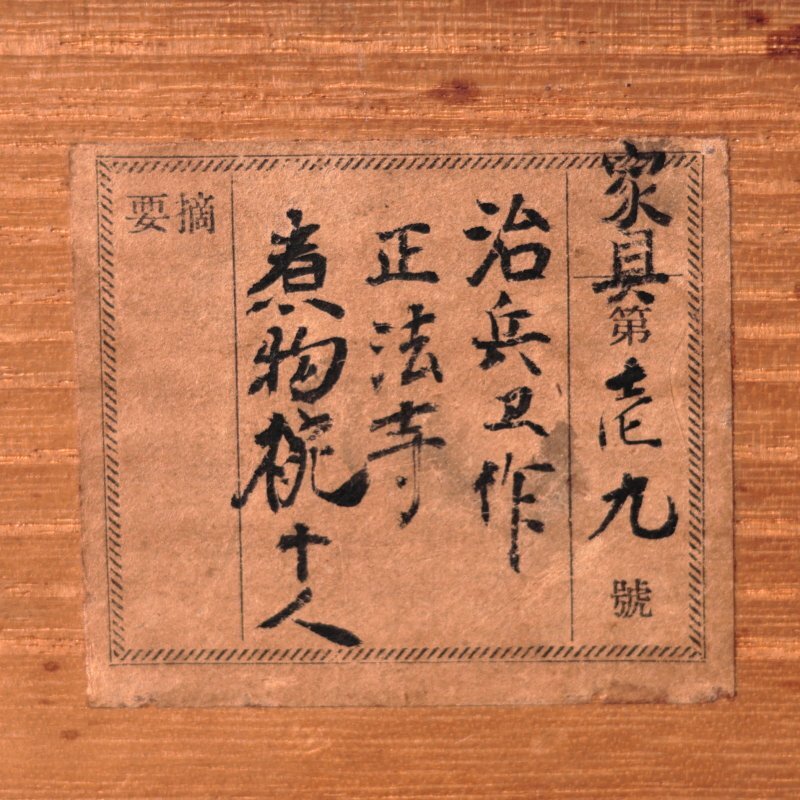 家具第壱九號
治兵卫作
正法寺
煮物椀十人
摘要